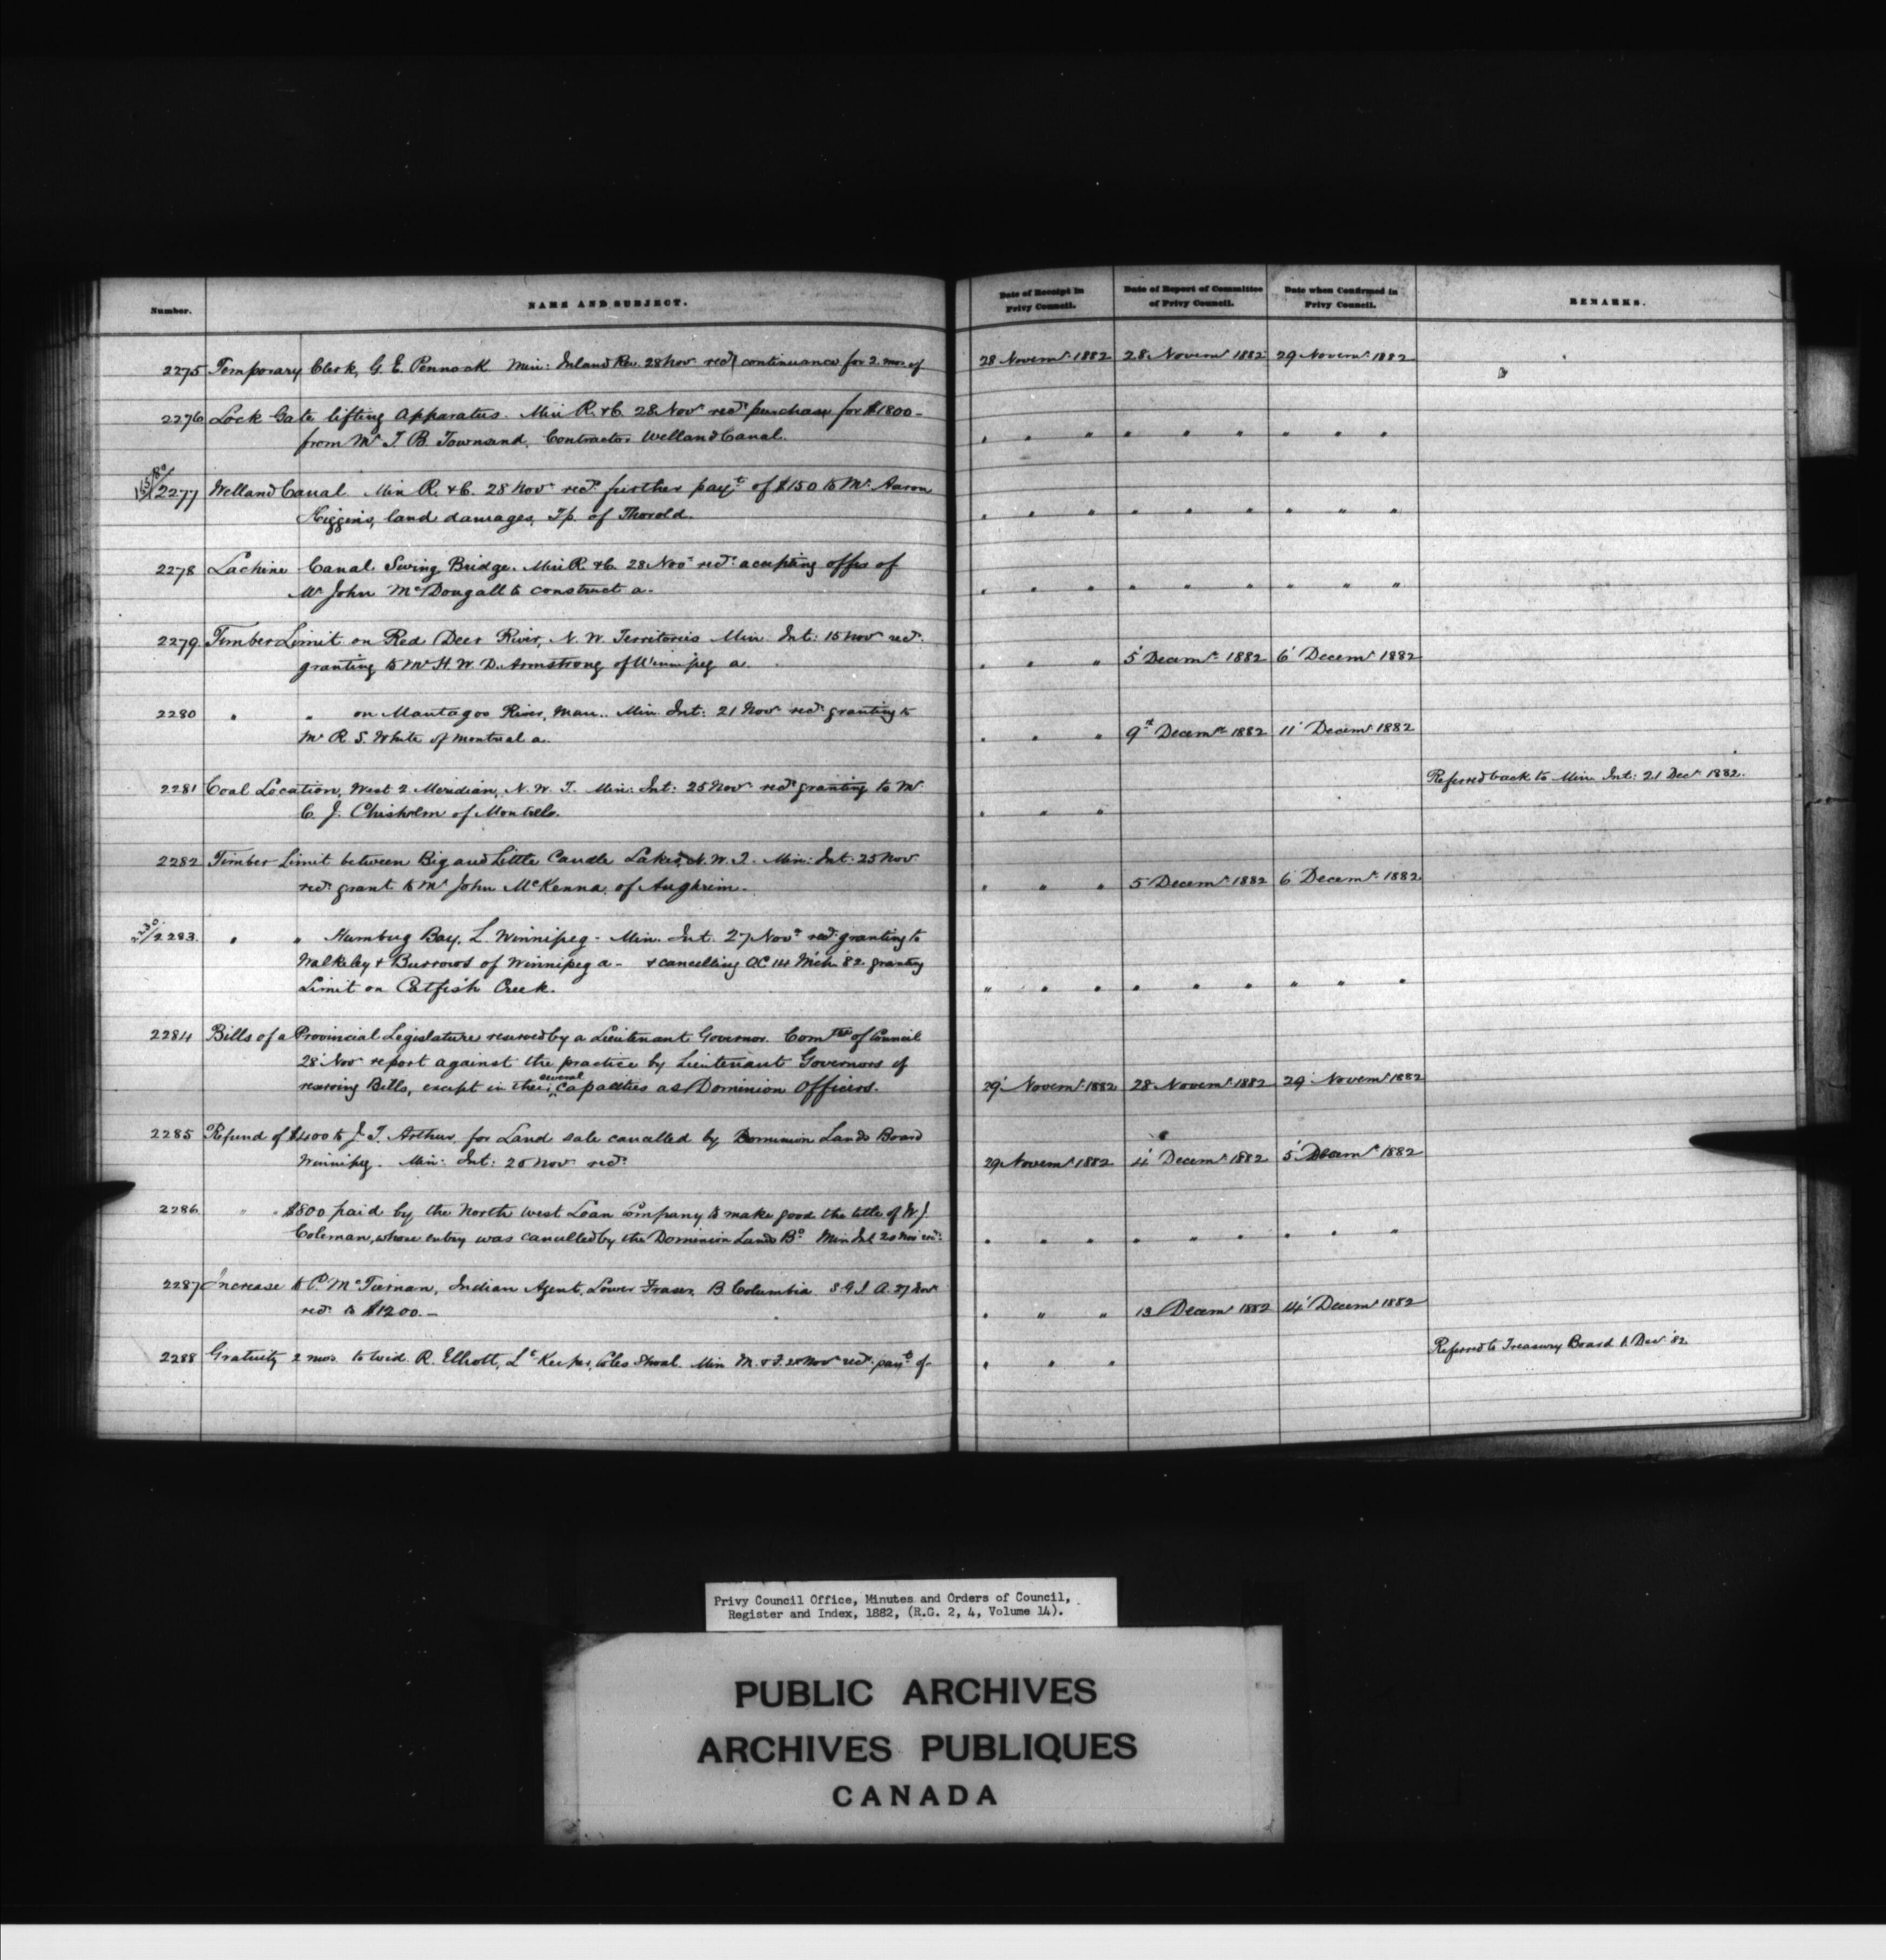 Number. NAME AND SUBJECT. Date of Receipt in Privy Council. Date of Report of Committee of Privy Council. Date when Confirmed in Privy Council. REMARKS.
2275 Temporary Clerk, G. E. Pennock Min: Inland Rev. 28 Nov recd continuance for 2 mos. of 28 Novemr 1882 28 Novemr 1882 29 Novemr 1882
2276 Lock Gate lifting Apparatus. Min R. & C. 28 Nov recd purchase for $1800 -
from Mr T. B. Townsend, Contractor Welland Canal. " " " " " " " " "
2277 Welland Canal Min R. & C. 28 Nov recd further payt of $150 to Mr Aaron
Higgins, land damages, Tp. of Thorold. " " " " " " " " "
2278 Lachine Canal Swing Bridge. Min R. & C. 28 Nov recd accepting offer of
Mr John McDougall to construct a. " " " " " " " " "
2279 Timber Limit on Red Deer River, N. W. Territories Min Int: 15 Nov recd
granting to Mr H. W. D. Armstrong of Winnipeg a. " " " 5 Decemr 1882 6 Decemr 1882
2280 " " on Mantagoo River, Man.. Min Int: 21 Nov recd granting to
Mr R. S. White of Montreal a. " " " 9th Decemr 1882 11 Decemr 1882
2281 Coal Location, West 2 Meridian, N. W. T. Min: Int: 25 Nov recd granting to Mr Referred back to Min Int: 21 Decr 1882.
C. J. Chisholm of " " "
2282 Timber Limit between Big and Little Candle Lakes, N. W. T. Min: Int: 25 Nov
recd grant to Mr John McKenna, of Aughrim. " " " 5 Decemr 1882 6 Decemr 1882
2283. " " Humbug Bay, L. Winnipeg - Min. Int. 27 Novr recd granting to
Walkeley & Burrows of Winnipeg a - & cancelling OC 14 Mch '82 granting
Limit on Catfish Creek. " " " " " " " " "
2284 Bills of a Provincial Legislature reserved by a Lieutenant Governor. Comtee of Council
28 Nov report against the practice by Lieutenant Governors of
reserving Bills, except in their several capacities as Dominion Officers. 29 Novemr 1882 28 Novemr 1882 29 Novemr 1882
2285 Refund of $400 to J. T. Arthur for Land sale cancelled by Dominion Lands Board
Winnipeg. Min: Int: 25 Nov recd 29 Novemr 1882 4 Decemr 1882 5 Decemr 1882
2286 " " $800 paid by the North West Loan Company to make good the title of W. J.
Coleman, whose entry was cancelled by the Dominion Lands Bd Min Int 20 Nov recd " " " " " " " " "
2287 Increase to P. McTiernan, Indian Agent, Lower Fraser, B. Columbia S. G. I. A. 27 Nov
recd to $1200. - " " " 13 Decemr 1882 14 Decemr 1882
2288 Gratuity 2 mos. to wid. R. Elliott, Lt Keeper, Coles Shoal. Min M. & F. 28 Nov recd payt of - " " " Referred to Treasury Board 1 Decr '82
Privy Council Office, Minutes and Orders of Council,
Register and Index, 1882, (R.G. 2, 4, Volume 14).
PUBLIC ARCHIVES
ARCHIVES PUBLIQUES
CANADA